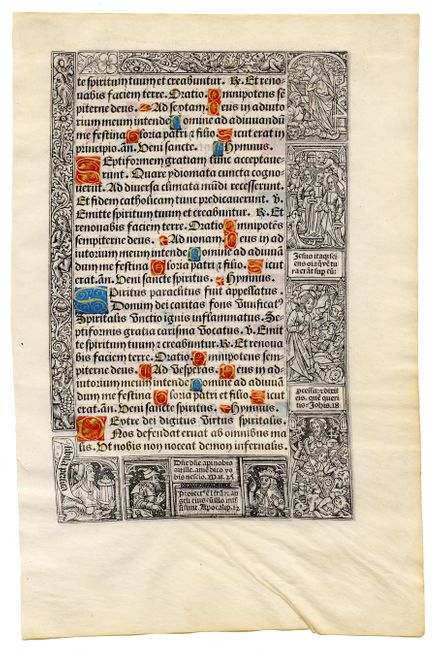 te spiritum tuum et creabuntur. R. Et reno-
uabis faciem terre. Oratio. Omnipotens se
piterne deus. Ad septam. Deus in adiuto
rium meum intende Domine ad adiuuandū
me festina Gloria patri ⁊ filio. Sicut erat in
principio. añ. Ueni sancte. Hymnus.
Septiformem gratiam tunc acceptaue-
runt. Quare ydiomata cuncta cognо-
uerūt. Ad diuersa climata mūdi recesserunt.
Et fidem catholicam tunc predicauerunt. v.
Emitte spiritum tuum et creabuntur. R. Et
renouabis faciem terre. Oratio. Omnipotēs
sempiterne deus. Ad nonam. Deus in ad
iutorium meum intende Domine ad adiuuā
dum me festina Gloria patri ⁊ filio. Sicut
erat. añ. Ueni sancte spiritus. Hymnus.
Spiritus paraclitus fuit appellatus
Donum dei caritas fons viuificatꝰ
Spiritalis vnctio ignis inflammatus. Se-
ptiformis gratia carisma vocatus. v. Emit
te spiritum tuum ⁊ creabūtur. R. Et renoua
bis faciem terre. Oratio Omnipotens sem-
piterne deus. Ad vesperas. Deus in ad-
iutorium meum intende Domine ad adiuuā
dum me festina Gloria patri et filio. Sicut
erat. añ. Ueni sancte spiritus. Hymnus.
Dextre dei digitus virtus spiritalis.
Nos defendat eruat ab omnibus ma
lis. Ut nobis non noceat demon infernalis.
Jesus itaqȝ sci
ens oīa que vētu
ra erāt sup eū:
pcessit: ⁊ dixit
eis. quē queri
tis: Johīs. 18
Dñe dñe api nobis
at ille. amē dico vo
bis nescio. Mat. 25
Proiectꝰ ē ⁊ frāt an
geli eius cū illo miss
sunt. Apocalip. 12